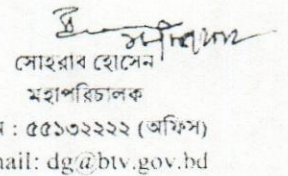 সোহরাব হোসেন
মহাপরিচালক
ন : ৫৫১৩২২২২ (অফিস)
mail: dg@btv.gov.bd